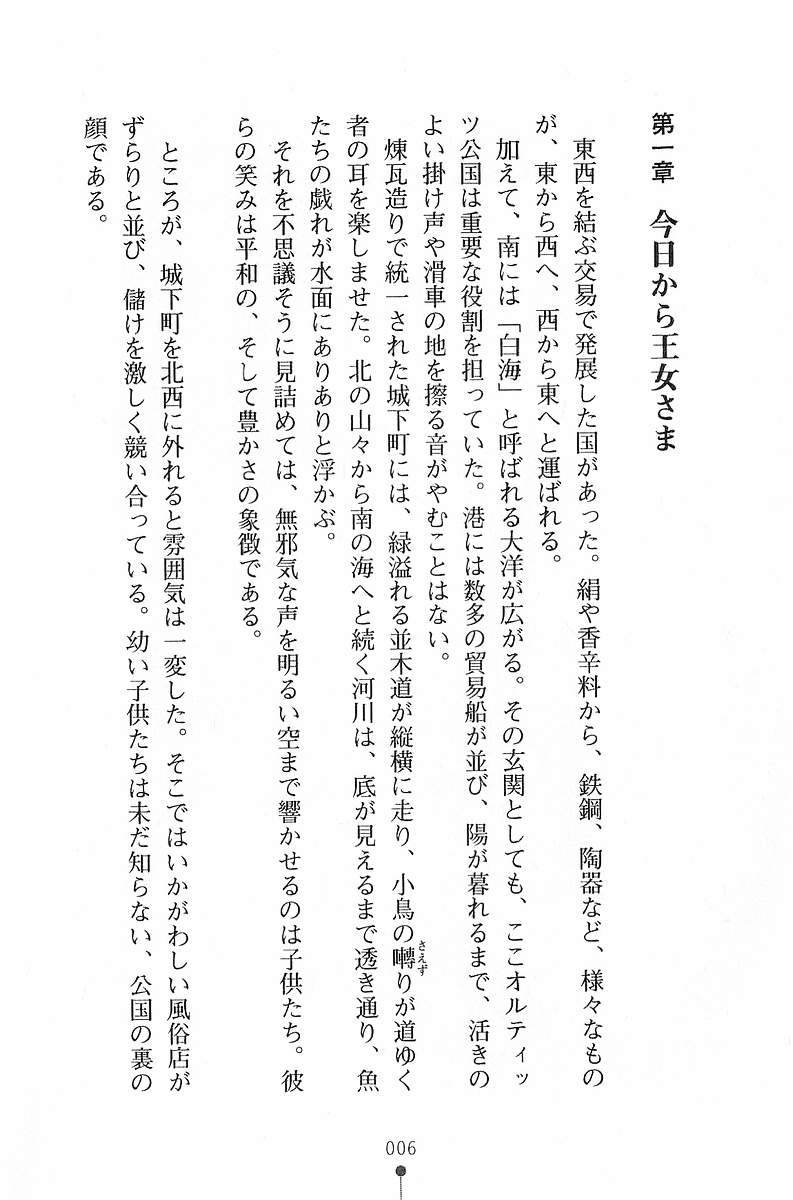 第一章　今日から王女さま
東西を結ぶ交易で発展した国があった。絹や香辛料から、鉄鋼、陶器など、様々なもの
が、東から西へ、西から東へと運ばれる。
加えて、南には「白海」と呼ばれる大洋が広がる。その玄関としても、ここオルティッ
ツ公国は重要な役割を担っていた。港には数多の貿易船が並び、陽が暮れるまで、活きの
よい掛け声や滑車の地を擦る音がやむことはない。
煉瓦造りで統一された城下町には、緑溢れる並木道が縦横に走り、小鳥の囀りが道ゆく
さえず
者の耳を楽しませた。北の山々から南の海へと続く河川は、底が見えるまで透き通り、魚
たちの戯れが水面にありありと浮かぶ。
それを不思議そうに見詰めては、無邪気な声を明るい空まで響かせるのは子供たち。彼
らの笑みは平和の、そして豊かさの象徴である。
ところが、城下町を北西に外れると雰囲気は一変した。そこではいかがわしい風俗店が
ずらりと並び、儲けを激しく競い合っている。幼い子供たちは未だ知らない、公国の裏の
顔である。
006